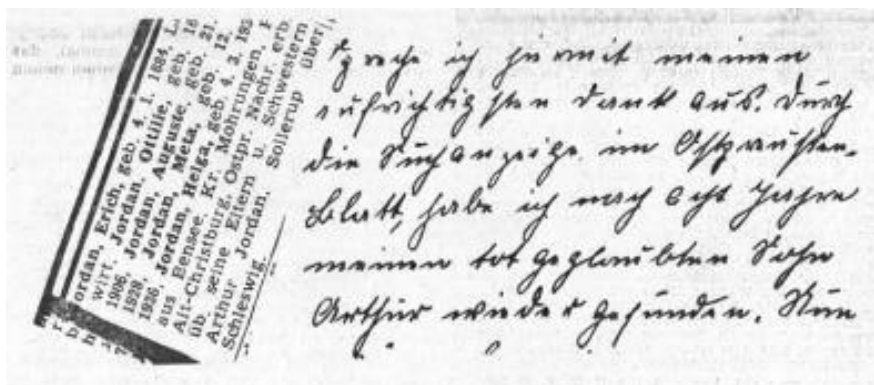 Jordan, Erich, geb. 4. 1. 1884,
wirt. Jordan, Ottilie, geb. 16
1906, Jordan, Auguste, geb. 21.
1898, Jordan, Meta, geb. 12.
1926, Jordan, Helga, geb. 4. 3. 193
aus Bensee, Kr. Mohrungen,
Alt-Christburg, Ostpr. Nachr. erb.
üb. seine Eltern u. Schwestern
Arthur Jordan, Sollerup über
Schleswig.
spreche ich hiermit meinen
aufrichtigsten Dank aus. Durch
die Suchanzeige im Ostpreußen-
Blatt, habe ich nach acht Jahre
meinen tot geglaubten Sohn
Arthur wieder gefunden. Nun